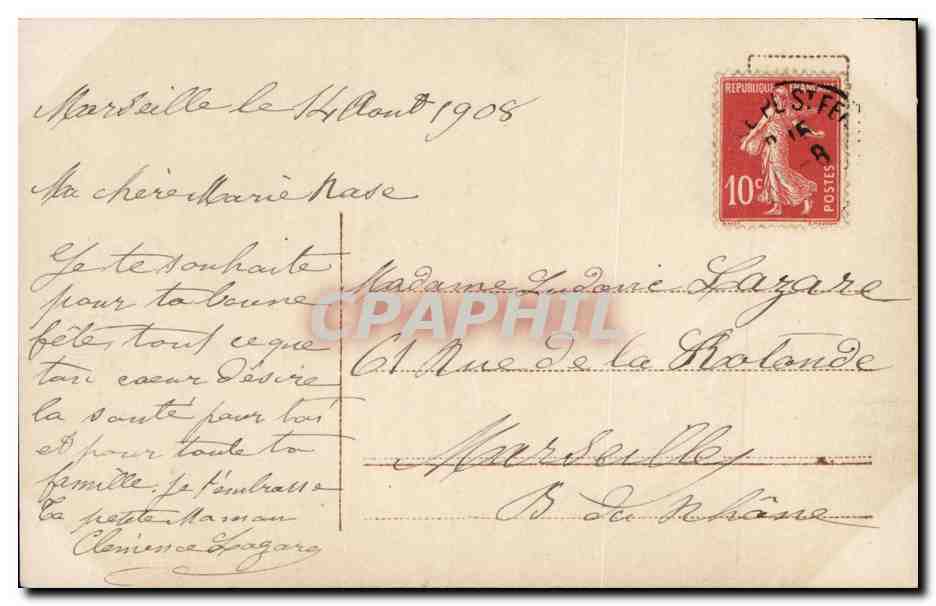 Marseille le 14 Aout 1908
Ma chère Marie Rose
Je te souhaite
pour ta bonne
fête tout ce que
ton coeur désire
la santé pour toi
et pour toute ta
famille. je t'embrasse
Ta petite Maman
Clémence Lazare
REPUBLIQUE FRANÇAISE
10c
POSTES
Madame Ludovic Lazare
61 Rue de la Rotonde
Marseille
B du Rhône
CPAPHIL